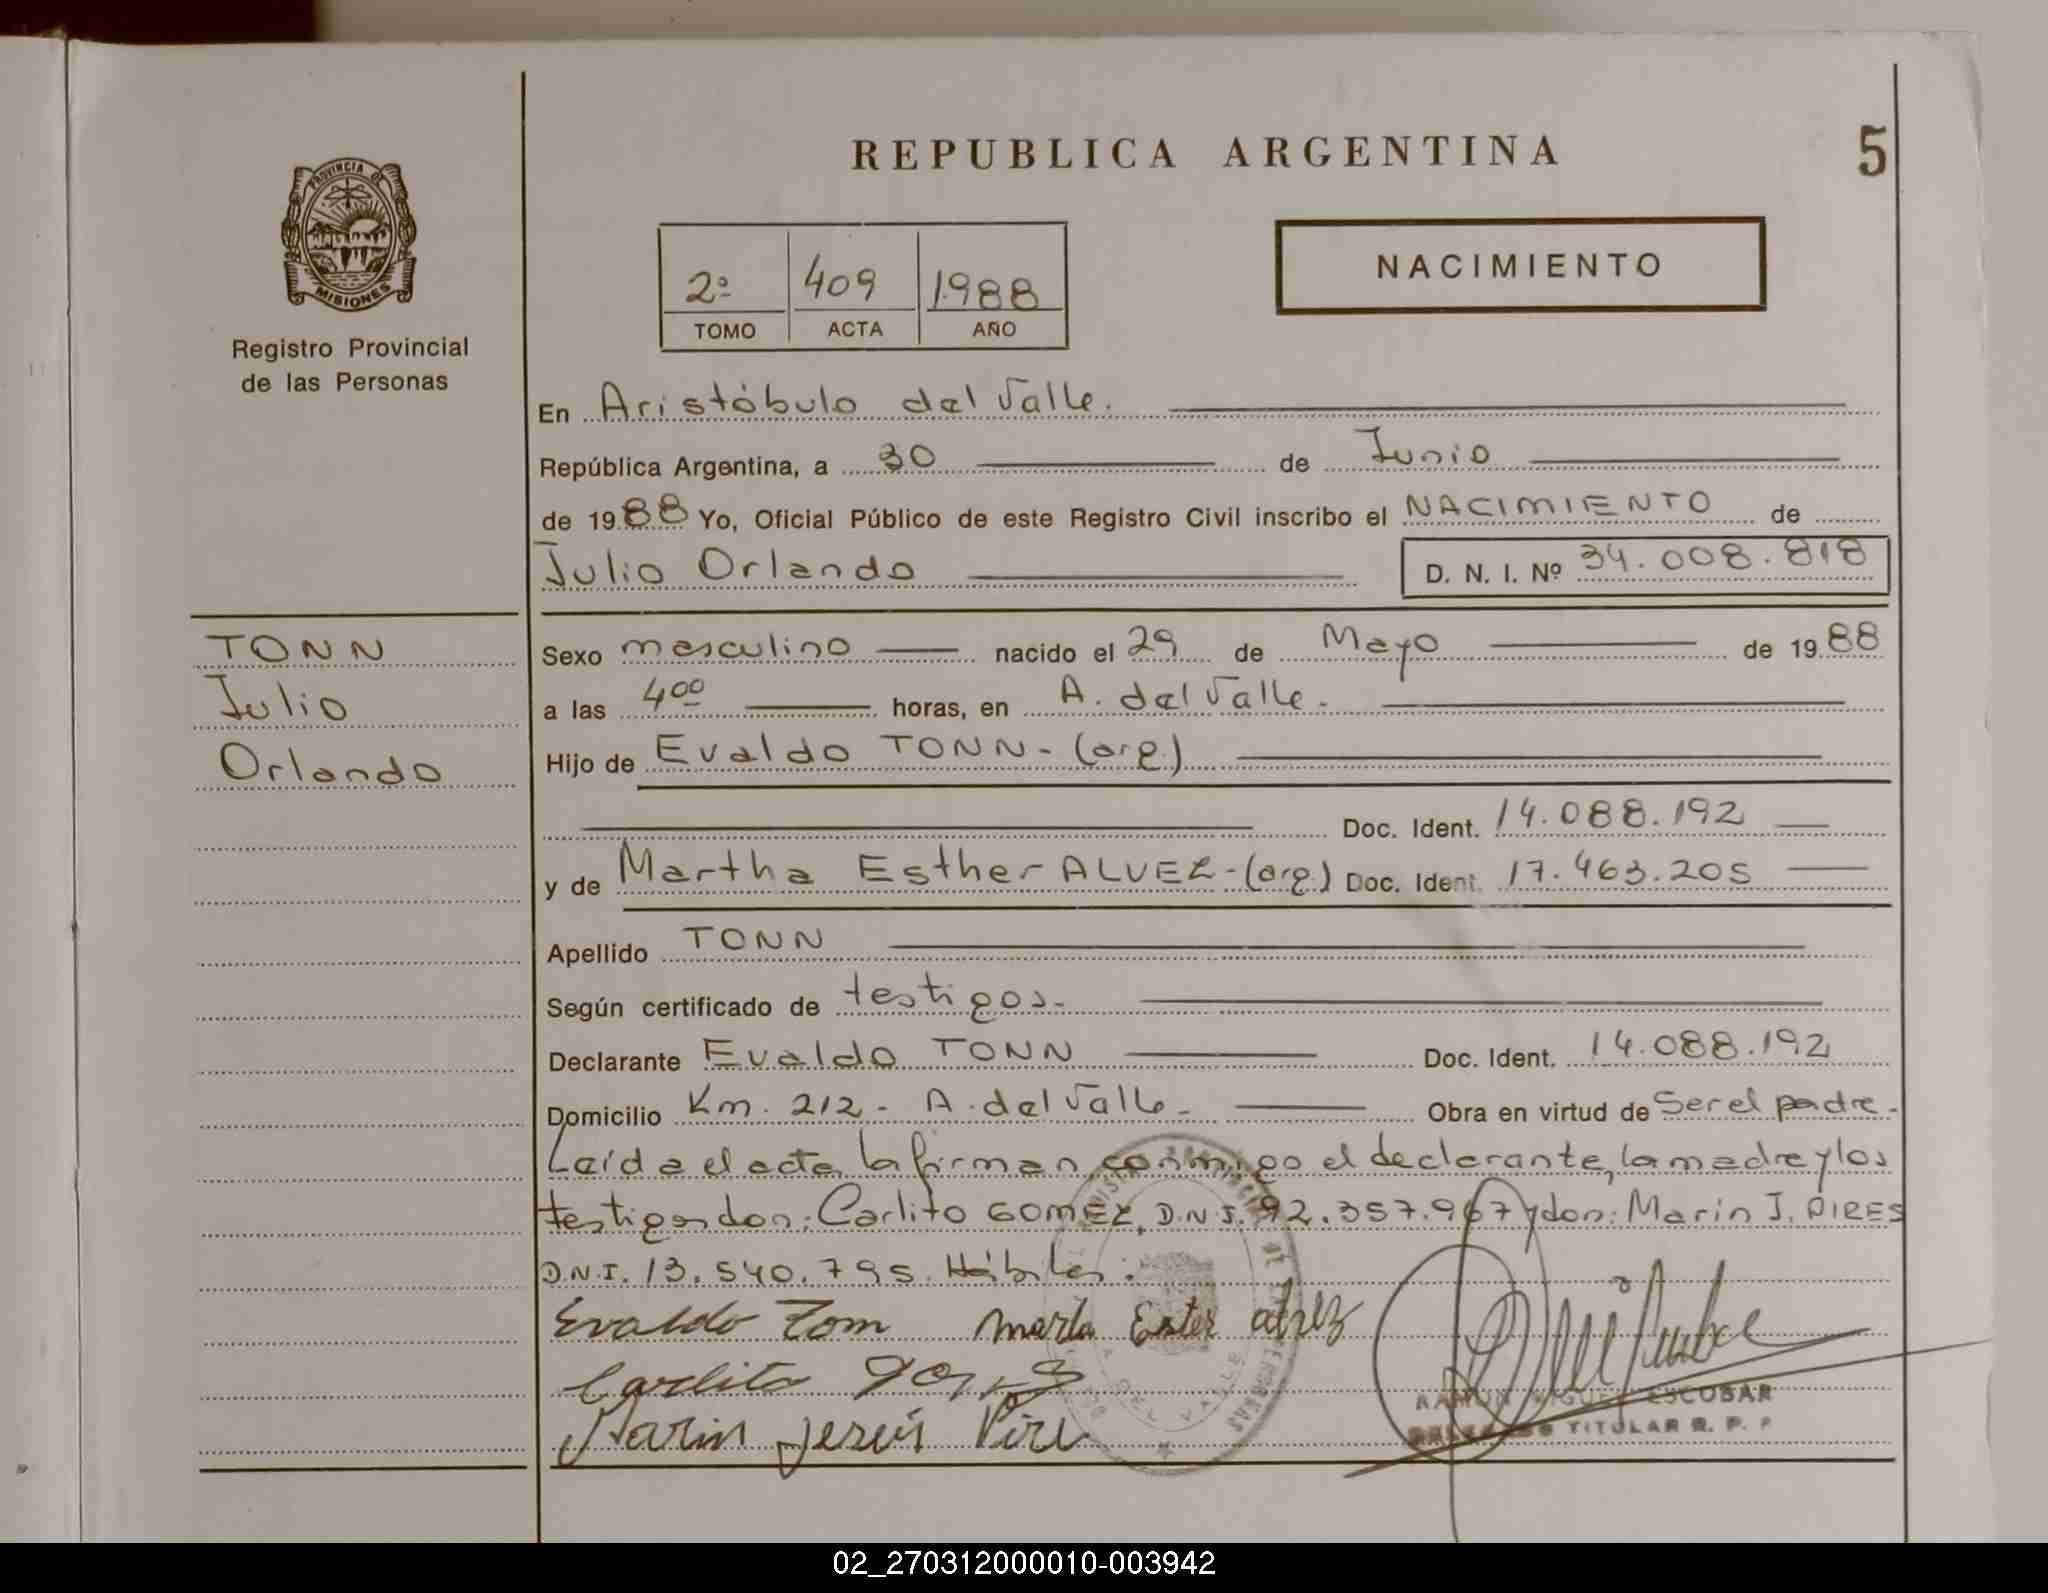 REPUBLICA ARGENTINA
5
PROVINCIA DE
MISIONES
Registro Provincial
de las Personas
2º 409 1988
TOMO ACTA AÑO
NACIMIENTO
En Aristóbulo del Valle.
República Argentina, a 30 de Junio
de 1988 Yo, Oficial Público de este Registro Civil inscribo el NACIMIENTO de
Julio Orlando D. N. I. Nº 34.008.818
TONN
Julio
Orlando
Sexo masculino nacido el 29 de Mayo de 1988
a las 4⁰⁰ horas, en A. del Valle.
Hijo de Evaldo TONN- (arg.)
Doc. Ident. 14.088.192
y de Martha Esther ALVEZ-(arg.) Doc. Ident. 17.463.205
Apellido TONN
Según certificado de testigos.
Declarante Evaldo TONN Doc. Ident. 14.088.192
Domicilio Km. 212- A. del Valle- Obra en virtud de Ser el padre.
Leída el acta, la firman conmigo el declarante, la madre y los
testigos don: Carlito GOMEZ, D.N.I. 92.357.967 y don: Marin J. PIRES
D.N.I. 13.540.795. Hábiles.
Evaldo Tom Marta Ester
Carlito
Marin Jesús Pire
RAMON MIGUEL ESCOBAR
TITULAR R. P. P.
DEL VALLE
02_270312000010-003942